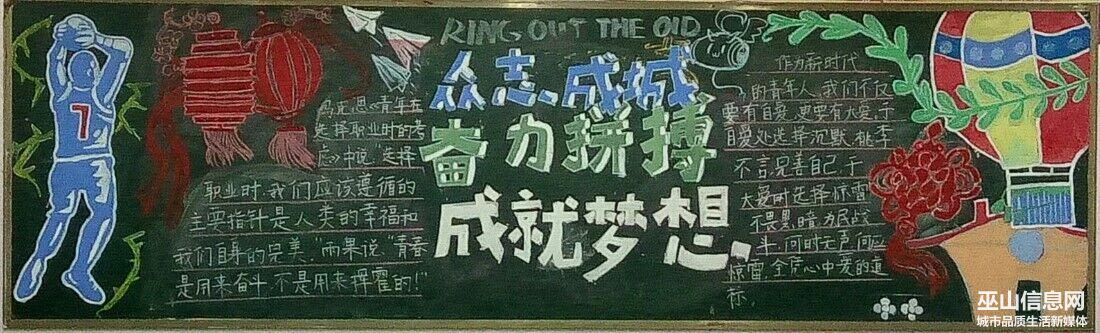 RING OUT THE OLD
众志成城
奋力拼搏
成就梦想
7
马克思《青年在
选择职业时的考
虑》中说“选择
职业时,我们应该遵循的
主要指针是人类的幸福和
我们自身的完美,”雨果说“青春
是用来奋斗,不是用来挥霍的!”
作为新时代
的青年人,我们不仅
要有自爱,更要有大爱,于
自爱处选择沉默,桃李
不言,完善自己,于
大爱时选择惊雷
不畏黑暗为民战
斗,何时无声何应
惊雷,全凭心中爱的追
标.
巫山信息网
城市品质生活新媒体